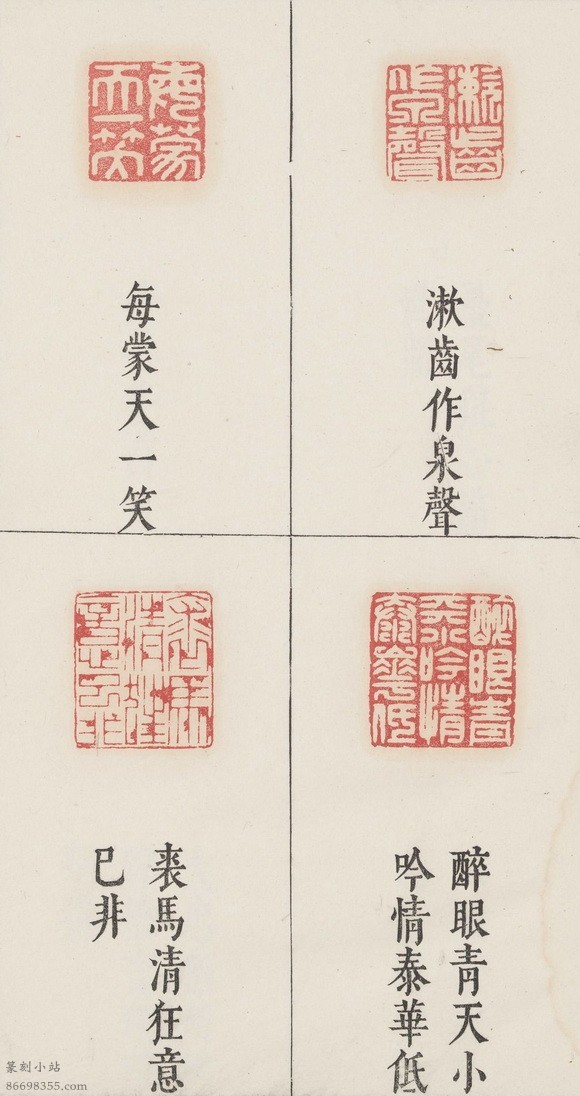 漱齒作泉聲
每蒙天一笑
醉眼青天小
吟情泰華低
裘馬清狂意
已非
篆刻小站
86698355.com